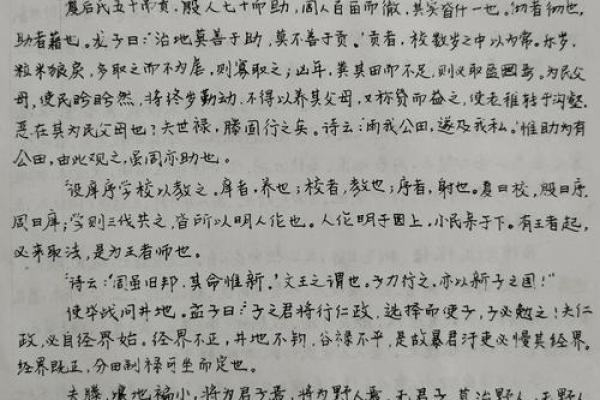 夏后氏五十而贡，殷人七十而助，周人百亩而徹，其实皆什一也。彻者彻也，
助者藉也。龙子曰：‘治地莫善于助，莫不善于贡。’贡者，校数岁之中以为常。乐岁，
粒米狼戾，多取之而不为虐，则寡取之；凶年，粪其田而不足，则必取盈焉。为民父
母，使民盻盻然，将终岁勤动，不得以养其父母，又称贷而益之，使老稚转乎沟壑，
恶在其为民父母也？夫世禄，滕固行之矣。诗云：‘雨我公田，遂及我私。’惟助为有
公田，由此观之，虽周亦助也。
“设庠序学校以教之。庠者，养也；校者，教也；序者，射也。夏曰校，殷曰序，
周曰庠；学则三代共之，皆所以明人伦也。人伦明于上，小民亲于下。有王者起，
必来取法，是为王者师也。
“诗云：‘周虽旧邦，其命惟新。’文王之谓也。子力行之，亦以新子之国！”
使毕战问井地。孟子曰：“子之君将行仁政，选择而使子，子必勉之！夫仁
政，必自经界始。经界不正，井地不钧，谷禄不平，是故暴君汙吏必慢其经界。
经界既正，分田制禄可坐而定也。
夫滕，壤地褊小，将为君子焉，将为野人焉，无君子，莫治野人，无野人